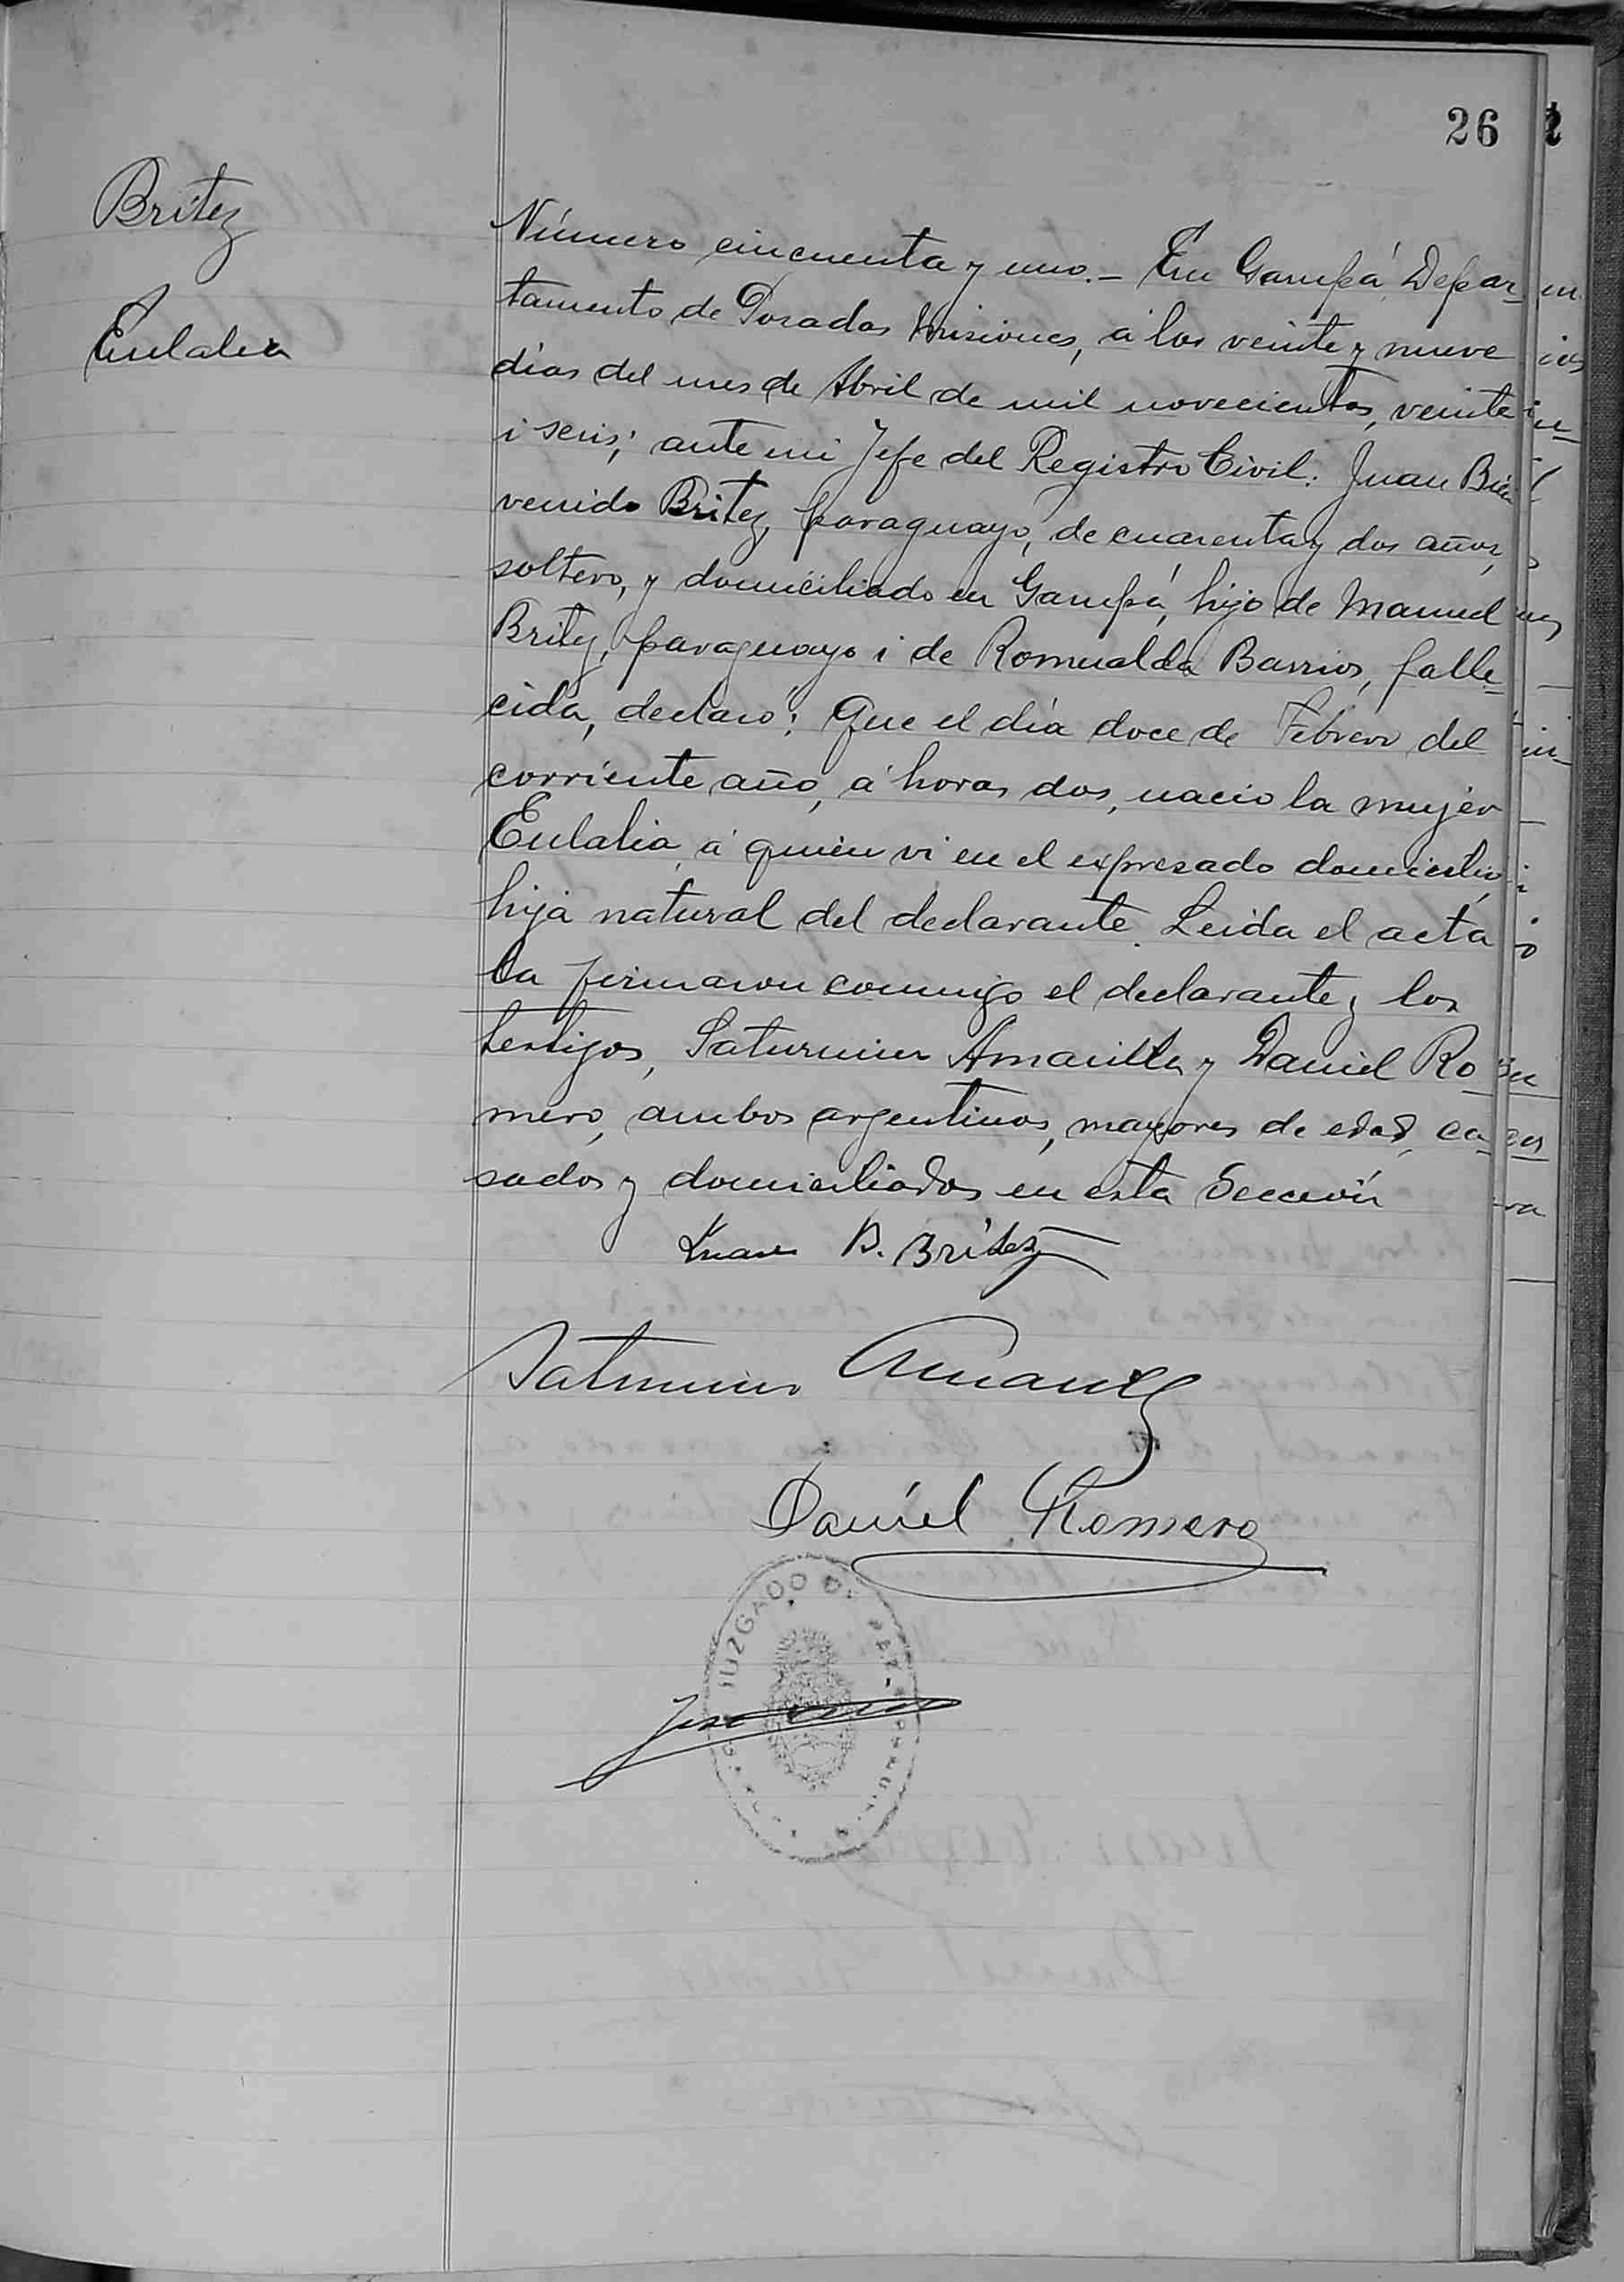 26
Britez
Eulalia
Número cincuenta y uno.- En Garupá, Depar-
tamento de Posadas Misiones, á los veinte y nueve
días del mes de Abril de mil novecientos, veinte
i seis; ante mi Jefe del Registro Civil: Juan Bien
venido Britez, paraguayo, de cuarenta y dos años,
soltero, y domiciliado en Garupá, hijo de Manuel
Britez, paraguayo i de Romualda Barrios, falle-
cida, declaró: Que el día doce de Febrero del
corriente año, á horas dos, nació la mujer
Eulalia, á quien vi en el expresado domicilio,
hija natural del declarante. Leida el acta
la firmaron conmigo el declarante y los
testigos, Saturnino Amarilla y Daniel Ro-
mero, ambos argentinos, mayores de edad, ca-
sados y domiciliados en esta Sección
Juan B. Britez
Saturnino Amarilla
Daniel Romero
JUZGADO DE PAZ
José